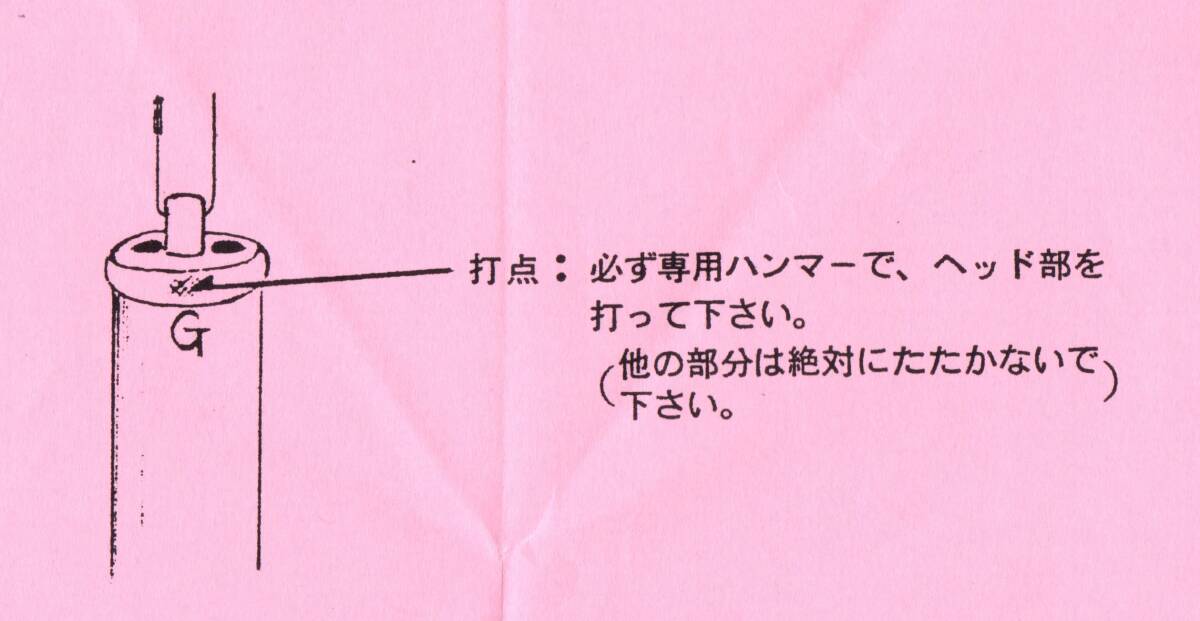 打点：必ず専用ハンマーで、ヘッド部を
打って下さい。
（他の部分は絶対にたたかないで
下さい。）
G